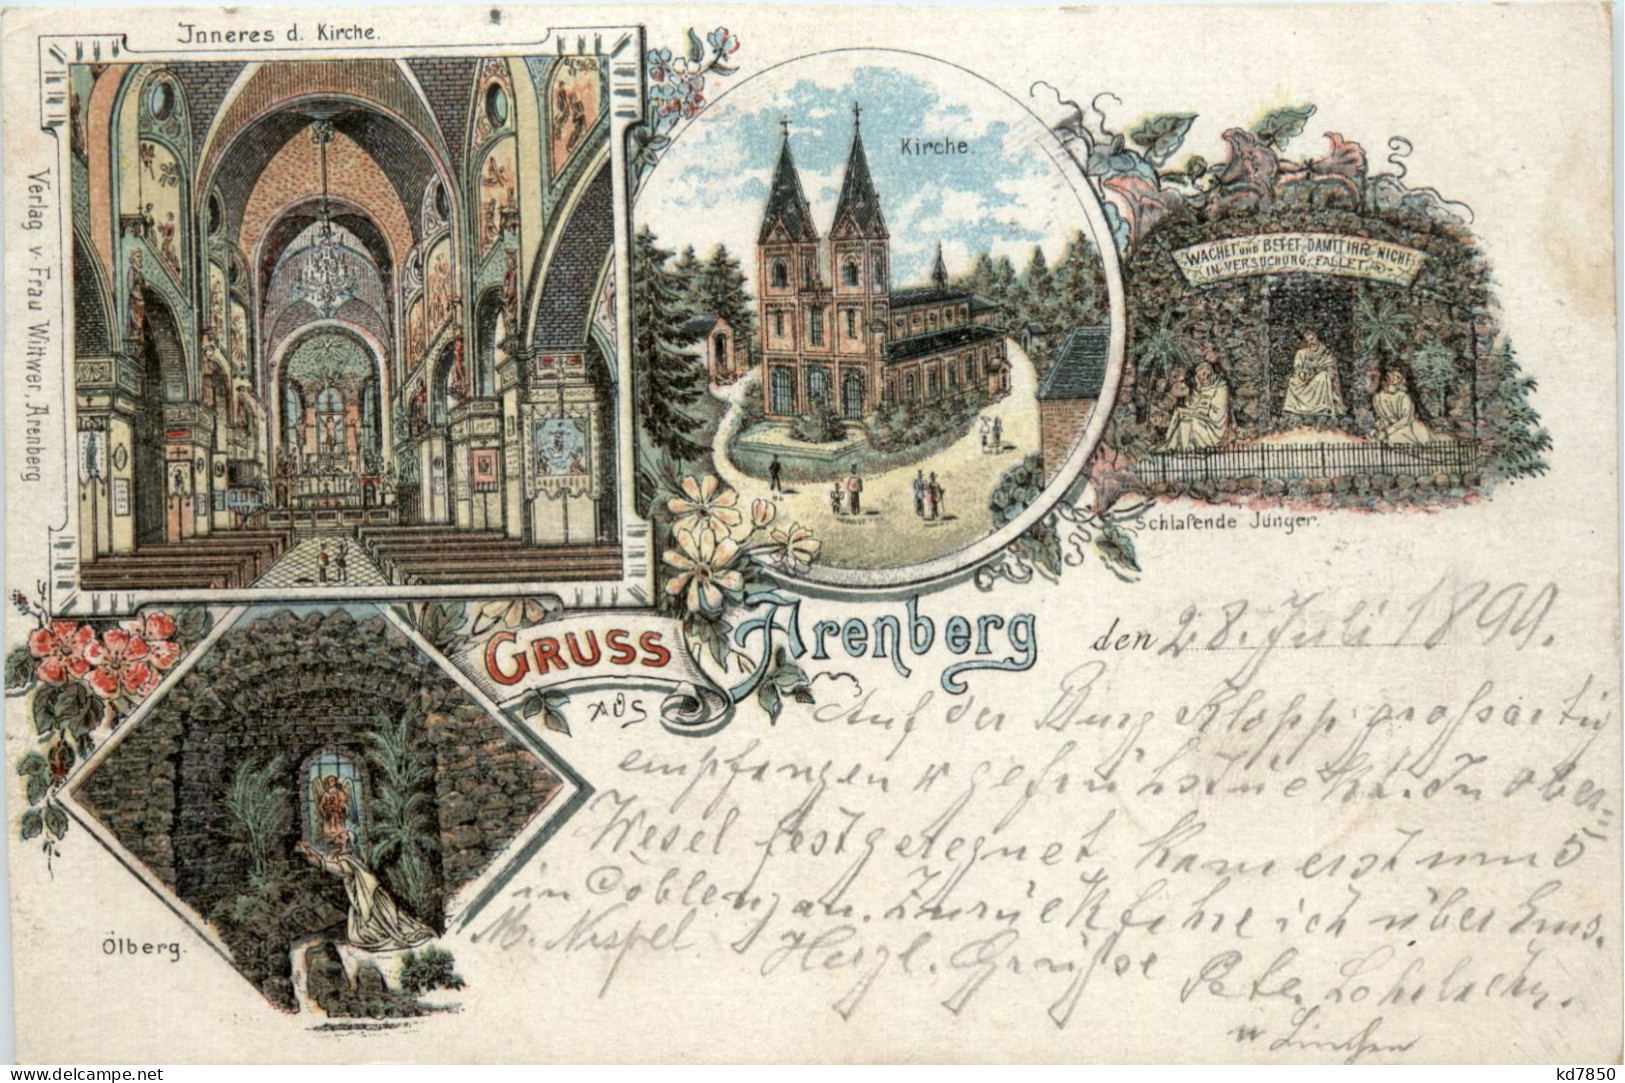 Inneres d. Kirche.
Verlag v. Frau Wittwer, Arenberg
Kirche.
WACHET UND BETET, DAMIT IHR NICHT
IN VERSUCHUNG FALLET
Schlafende Jünger.
GRUSS
AUS
Arenberg
den 28. Juli 1899.
Auf der Burg Klopp großartig
empfangen u gefrühstückt. In Ober=
Wesel festgeregnet kam erst um 5
in Coblenz an. Zurück fahre ich über Ems.
Herzl. Grüße
Ölberg.
kd7850